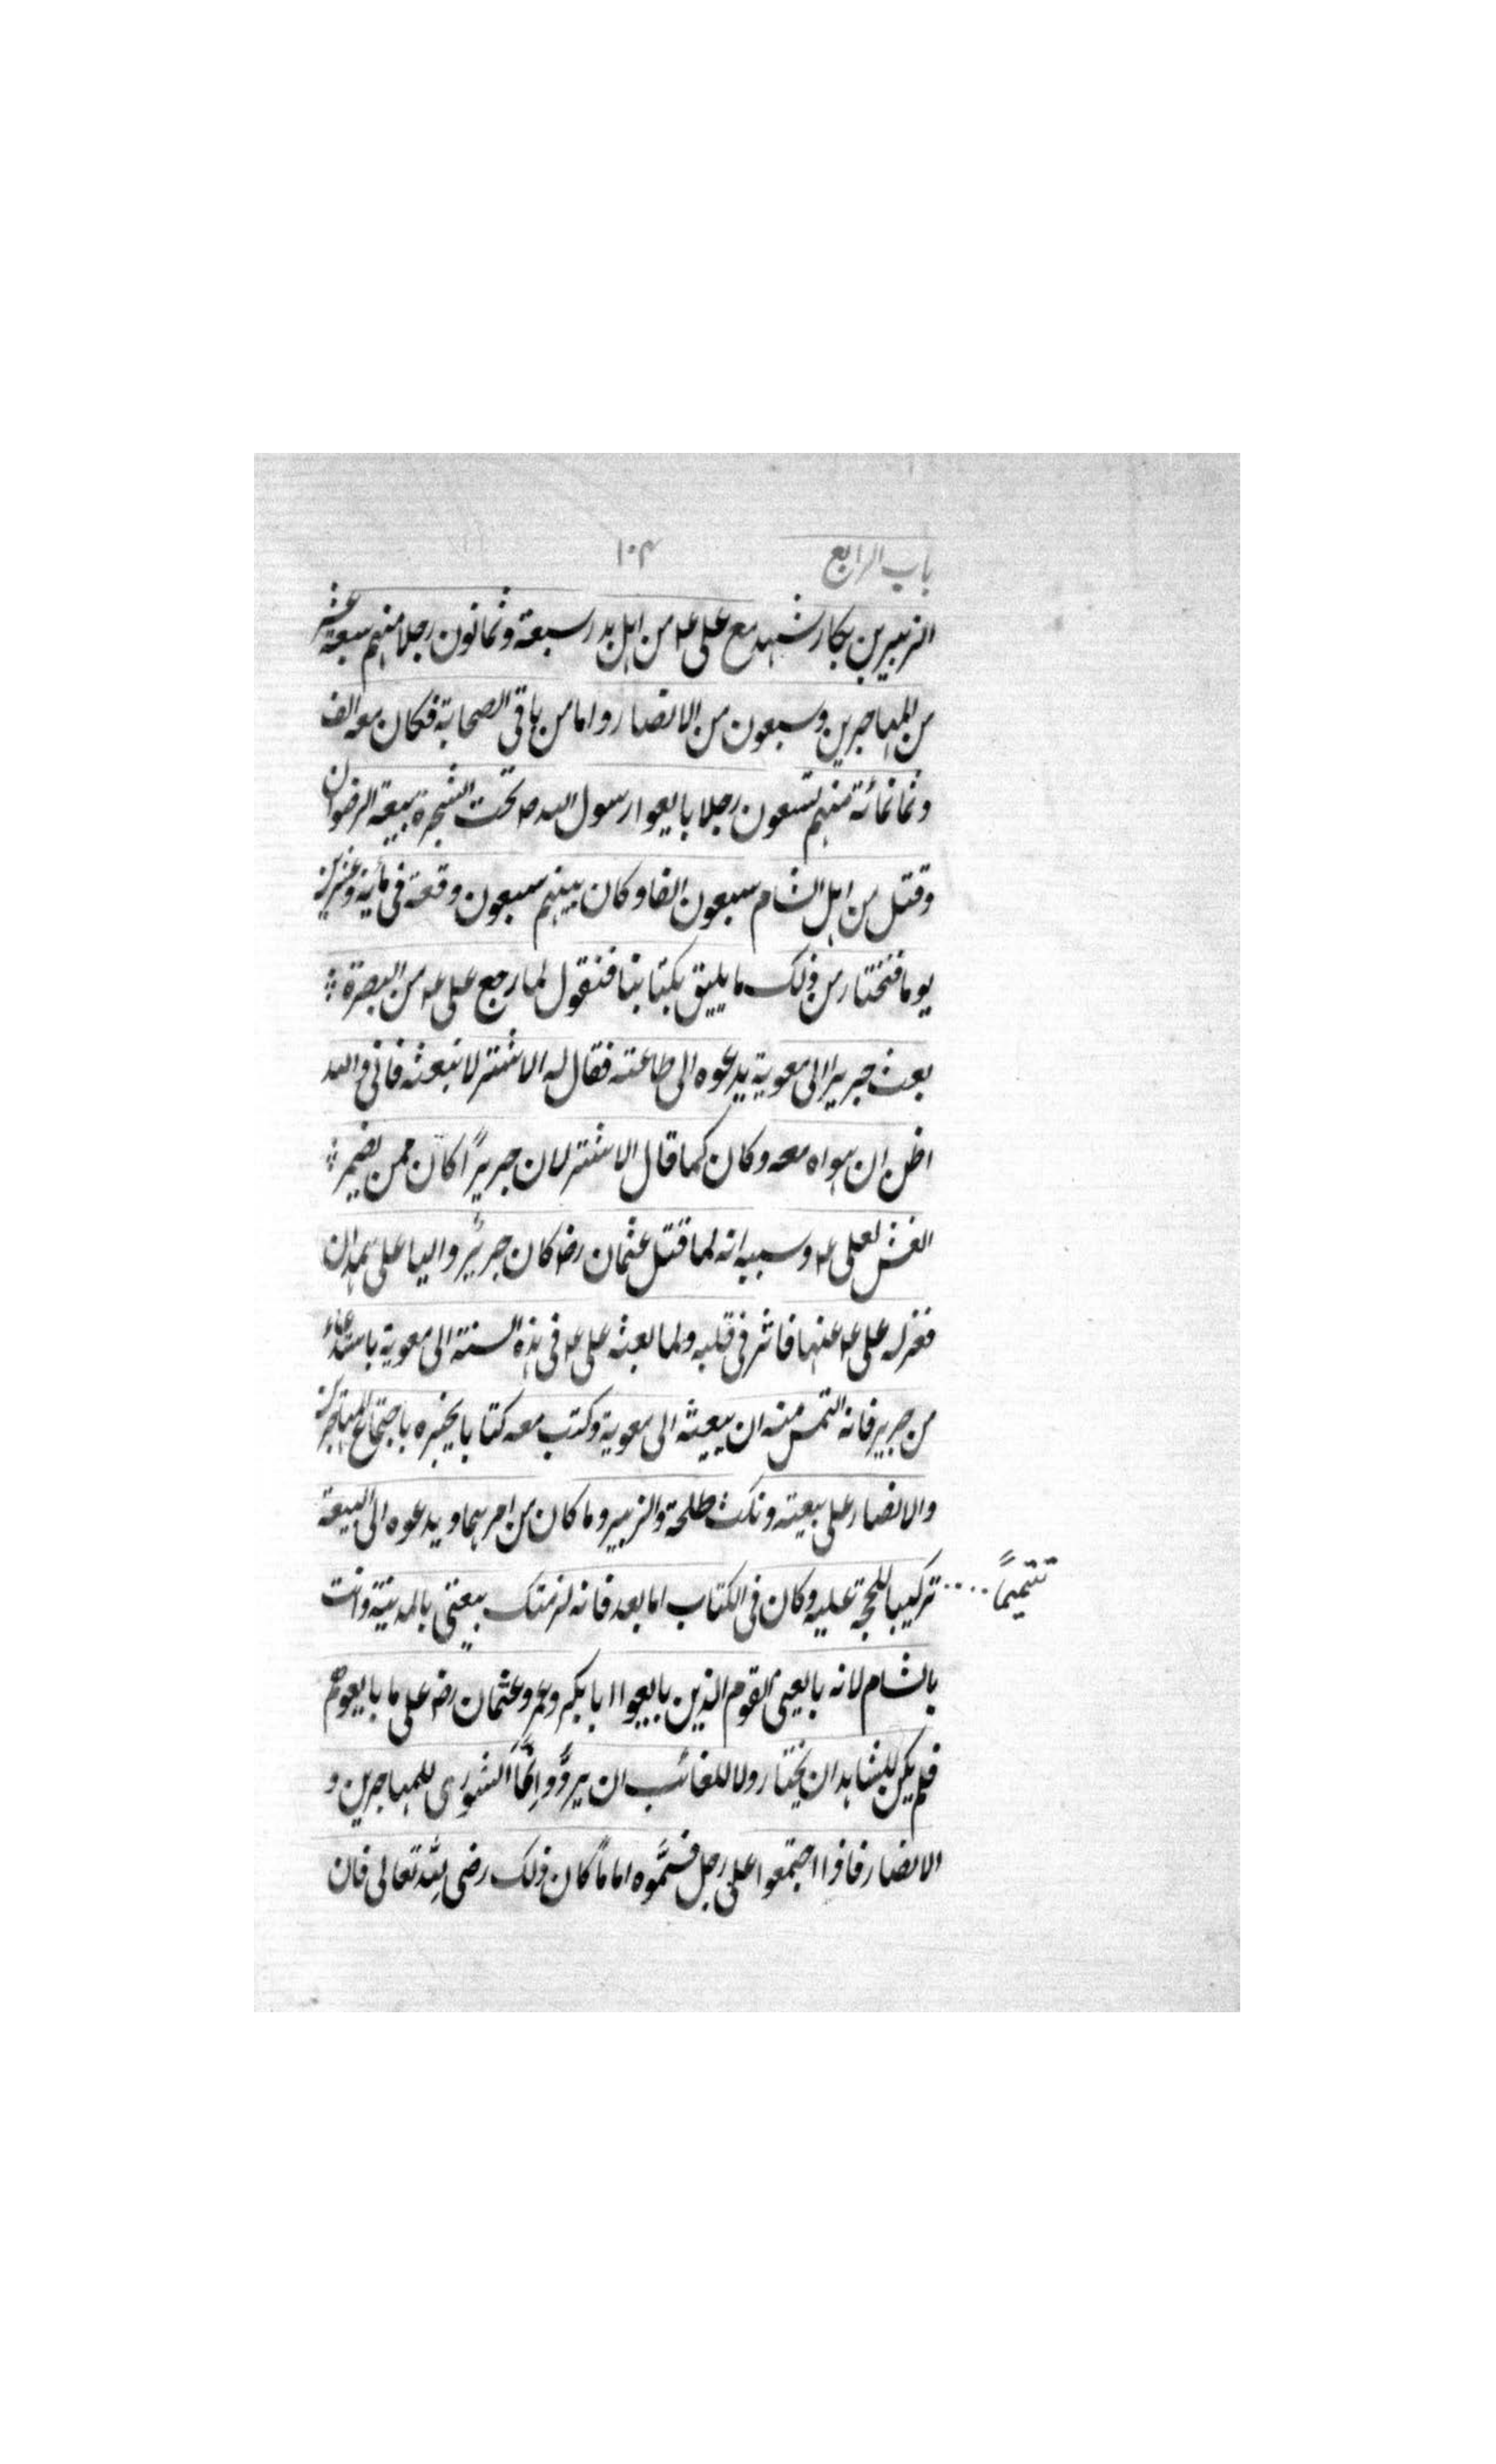 باب الرابع ١٠٤
الزبير بن بكار شهد مع على ع من اهل بدر سبعة وثمانون رجلا منهم سبعة عشر
من المهاجرين وسبعون من الانصار واما من باقى الصحابة فكان معه الف
وثمانمائة منهم تسعون رجلا بايعوا رسول الله ص تحت الشجرة بيعة الرضوان
وقتل من اهل الشام سبعون الفا وكان بينهم سبعون وقعة فى مأية وعشرين
يوما فنختار من ذلك ما يليق بكتابنا فنقول لما رجع على ع من البصرة
بعث جريرا الى معوية يدعوه الى طاعته فقال له الاشتر لا تبعثه فانى والله
اظن ان هواه معه وكان كما قال الاشتر لان جريرًا كان ممن يضمر
الغش لعلى ع وسببه انه لما قتل عثمان رض كان جريرٌ واليا على همدان
فعزله على ع عنها فاثر فى قلبه ولما بعثه على ع فى هذه السنة الى معوية باستدعاء
من جرير فانه التمس منه ان يبعثه الى معوية وكتب معه كتابا يخبره باجتماع المهاجرين
والانصار على بيعته ونكث طلحة والزبير وما كان من امرهما ويدعوه الى البيعة
تركيبا للحجة عليه وكان فى الكتاب اما بعد فانه لزمتك بيعتى بالمدينة وانت
تتميمًا
بالشام لانه بايعنى القوم الذين بايعوا ابا بكر وعمر وعثمان رض على ما بايعوهم
فلم يكن للشاهد ان يختار ولا للغائب ان يردَّ وانَّما الشورى للمهاجرين و
الانصار فاذا اجتمعوا على رجل فسَمَّوه امامًا كان ذلك رضى لله تعالى فان